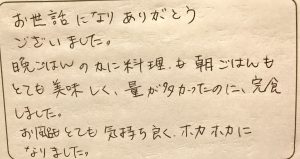 お世話になりありがとう
ございました。
晩ごはんのカニ料理も朝ごはんも
とても美味しく、量が多かったのに、完食
しました。
お風呂とても気持ち良く、ホカホカに
なりました。